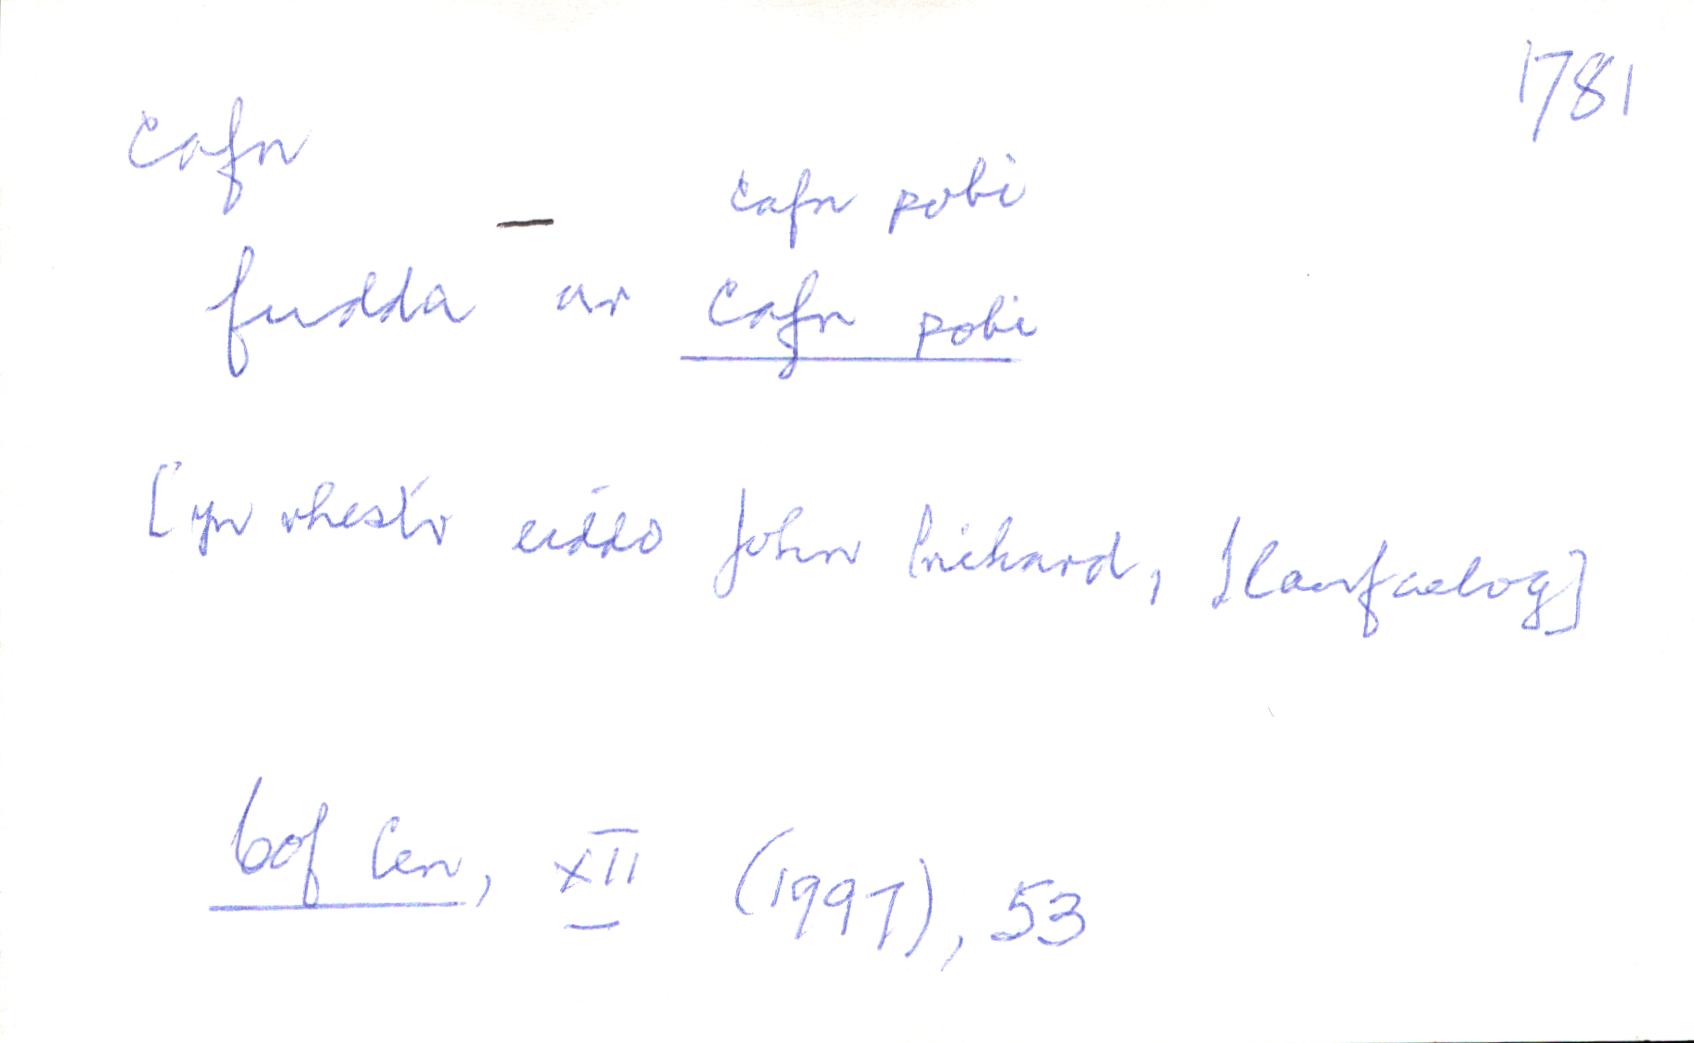 1781
cafn
— cafn pobi
fudda ar cafn pobi
[yn rhestr eiddo John Prichard, Llanfaelog]
Cof Cen, XII (1997), 53